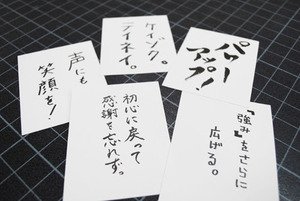 パワー
アップ!
ケイゾク。
テイネイ。
声にも
笑顔を!
「強み」をさらに
広げる。
初心に戻って
感謝を忘れずっ。